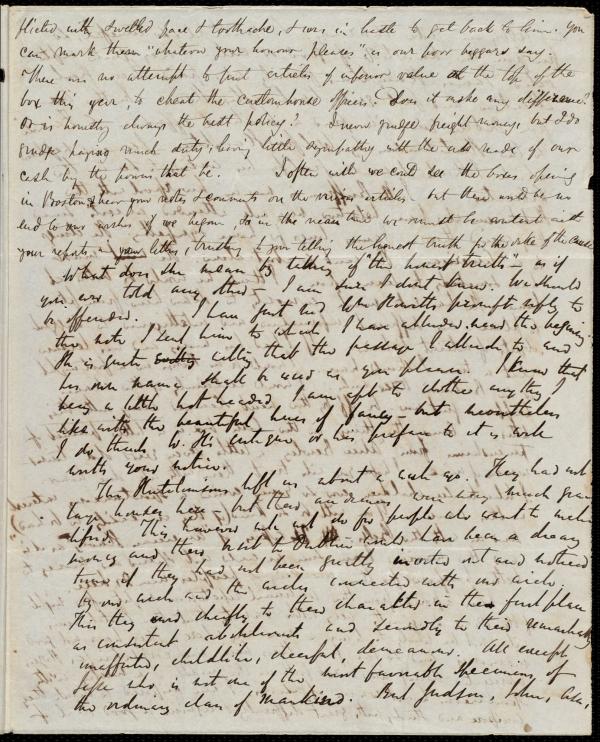 flicted with swelled face & toothache, & was in haste to get back to him. You
can mark them "whatever your honour pleases" as our poor beggars say.
There was no attempt to put articles of inferior value at the top of the
box this year to cheat the customhouse officers. Does it make any difference?
or is honesty always the best policy? I never grudge freight money, but I do
grudge paying much duty, having little sympathy with the use made of our
cash by the powers that be. I often wish we could see the boxes opening
in Boston & hear your notes & comments on the various articles but there would be no
end to our wishes if we began, so in the mean time we must be content with
your reports & letters, trusting to your telling the honest truth for the sake of the cause
What does she mean by talking of "the honest truth" – as if
you ever told any other – I am sure I don't know. We should
be offended. I have just had Wm Howitt's prompt reply to
the note I sent him to which I have alluded near the beginning.
He is quite willing that the passage I allude to and
his own name shall be used as you please. I know that
being a little hot headed, I am apt to clothe anything I
like with the beautiful hues of fancy – but nevertheless
I do think W. H's critique or his preface to it is well
worth your notice.
The Hutchinsons left us about a week ago. They had not
large houses here – but their audiences were very much
This however will not do for people who want to make
money and their visit to Dublin would have been a dreary
time if they had not been greatly invited out and noticed
by our circle and the circles connected with our circle.
This they owed chiefly to their character in the first place
as consistent abolitionists and secondly to their remarkably
unaffected, childlike, cheerful, demeanour. All except
Jesse who is not one of the most favourable specimens of
the ordinary class of mankind. But Judson, John, Asa,